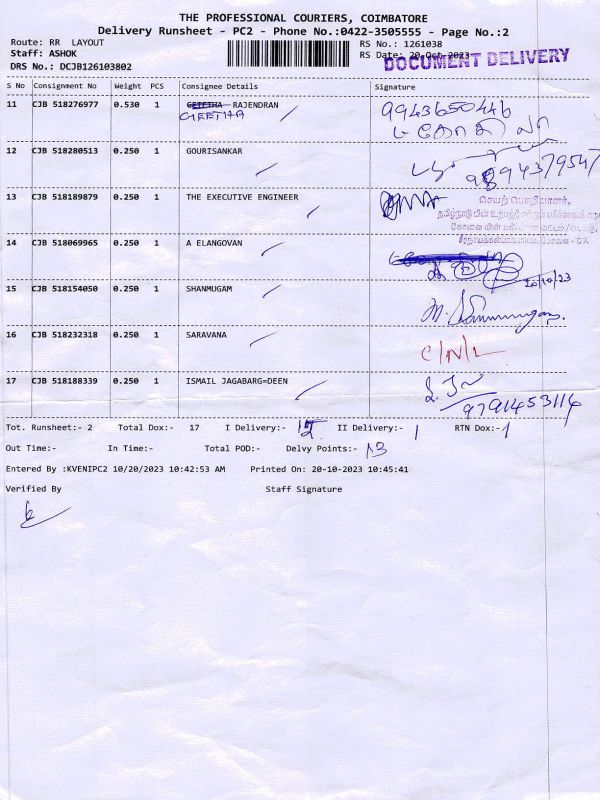 THE PROFESSIONAL COURIERS, COIMBATORE
Delivery Runsheet - PC2 - Phone No.:0422-3505555 - Page No.:2
Route: RR LAYOUT
RS No.: 1261038
Staff: ASHOK
RS Date: 20-Oct-2023
DOCUMENT DELIVERY
DRS No.: DCJB126103802
S No Consignment No Weight PCS Consignee Details Signature
11 CJB 518276977 0.530 1 GETETHA RAJENDRAN 9943650446
GEETHA
12 CJB 518280513 0.250 1 GOURISANKAR
9894379547
13 CJB 518189879 0.250 1 THE EXECUTIVE ENGINEER
செயற் பொறியாளர்,
14 CJB 518069965 0.250 1 A ELANGOVAN
20/10/23
15 CJB 518154050 0.250 1 SHANMUGAM
M. Shanmugam.
16 CJB 518232318 0.250 1 SARAVANA
C/N/L
17 CJB 518188339 0.250 1 ISMAIL JAGABARG=DEEN
9791453114
Tot. Runsheet:- 2 Total Dox:- 17 I Delivery:- II Delivery:- 1 RTN Dox:- 1
Out Time:- In Time:- Total POD:- Delvy Points:- 13
Entered By :KVENIPC2 10/20/2023 10:42:53 AM Printed On: 20-10-2023 10:45:41
Verified By Staff Signature